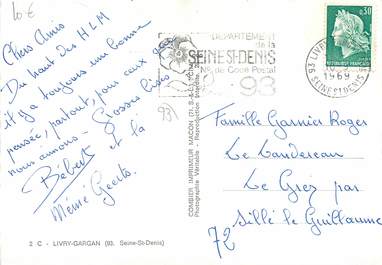 10€
Chers Amis
Du haut des HLM
il y a toujours une bonne
pensée, partout, pour ceux que
nous aimons - Grosses bises
Bébert et la
Mémé Geerts
93
DEPARTEMENT
de la
SEINE-ST-DENIS
de Code Postal
93
0,30
REPUBLIQUE FRANÇAISE
93 LIVRY
1969
SEINE-ST-DENIS
COMBIER IMPRIMEUR MACON
Photographie Véritable - Reproduction
Famille Garnier Roger
Le Landereau
Le Grez par
Sillé le Guillaume
72
2 C - LIVRY-GARGAN (93. Seine-St-Denis)